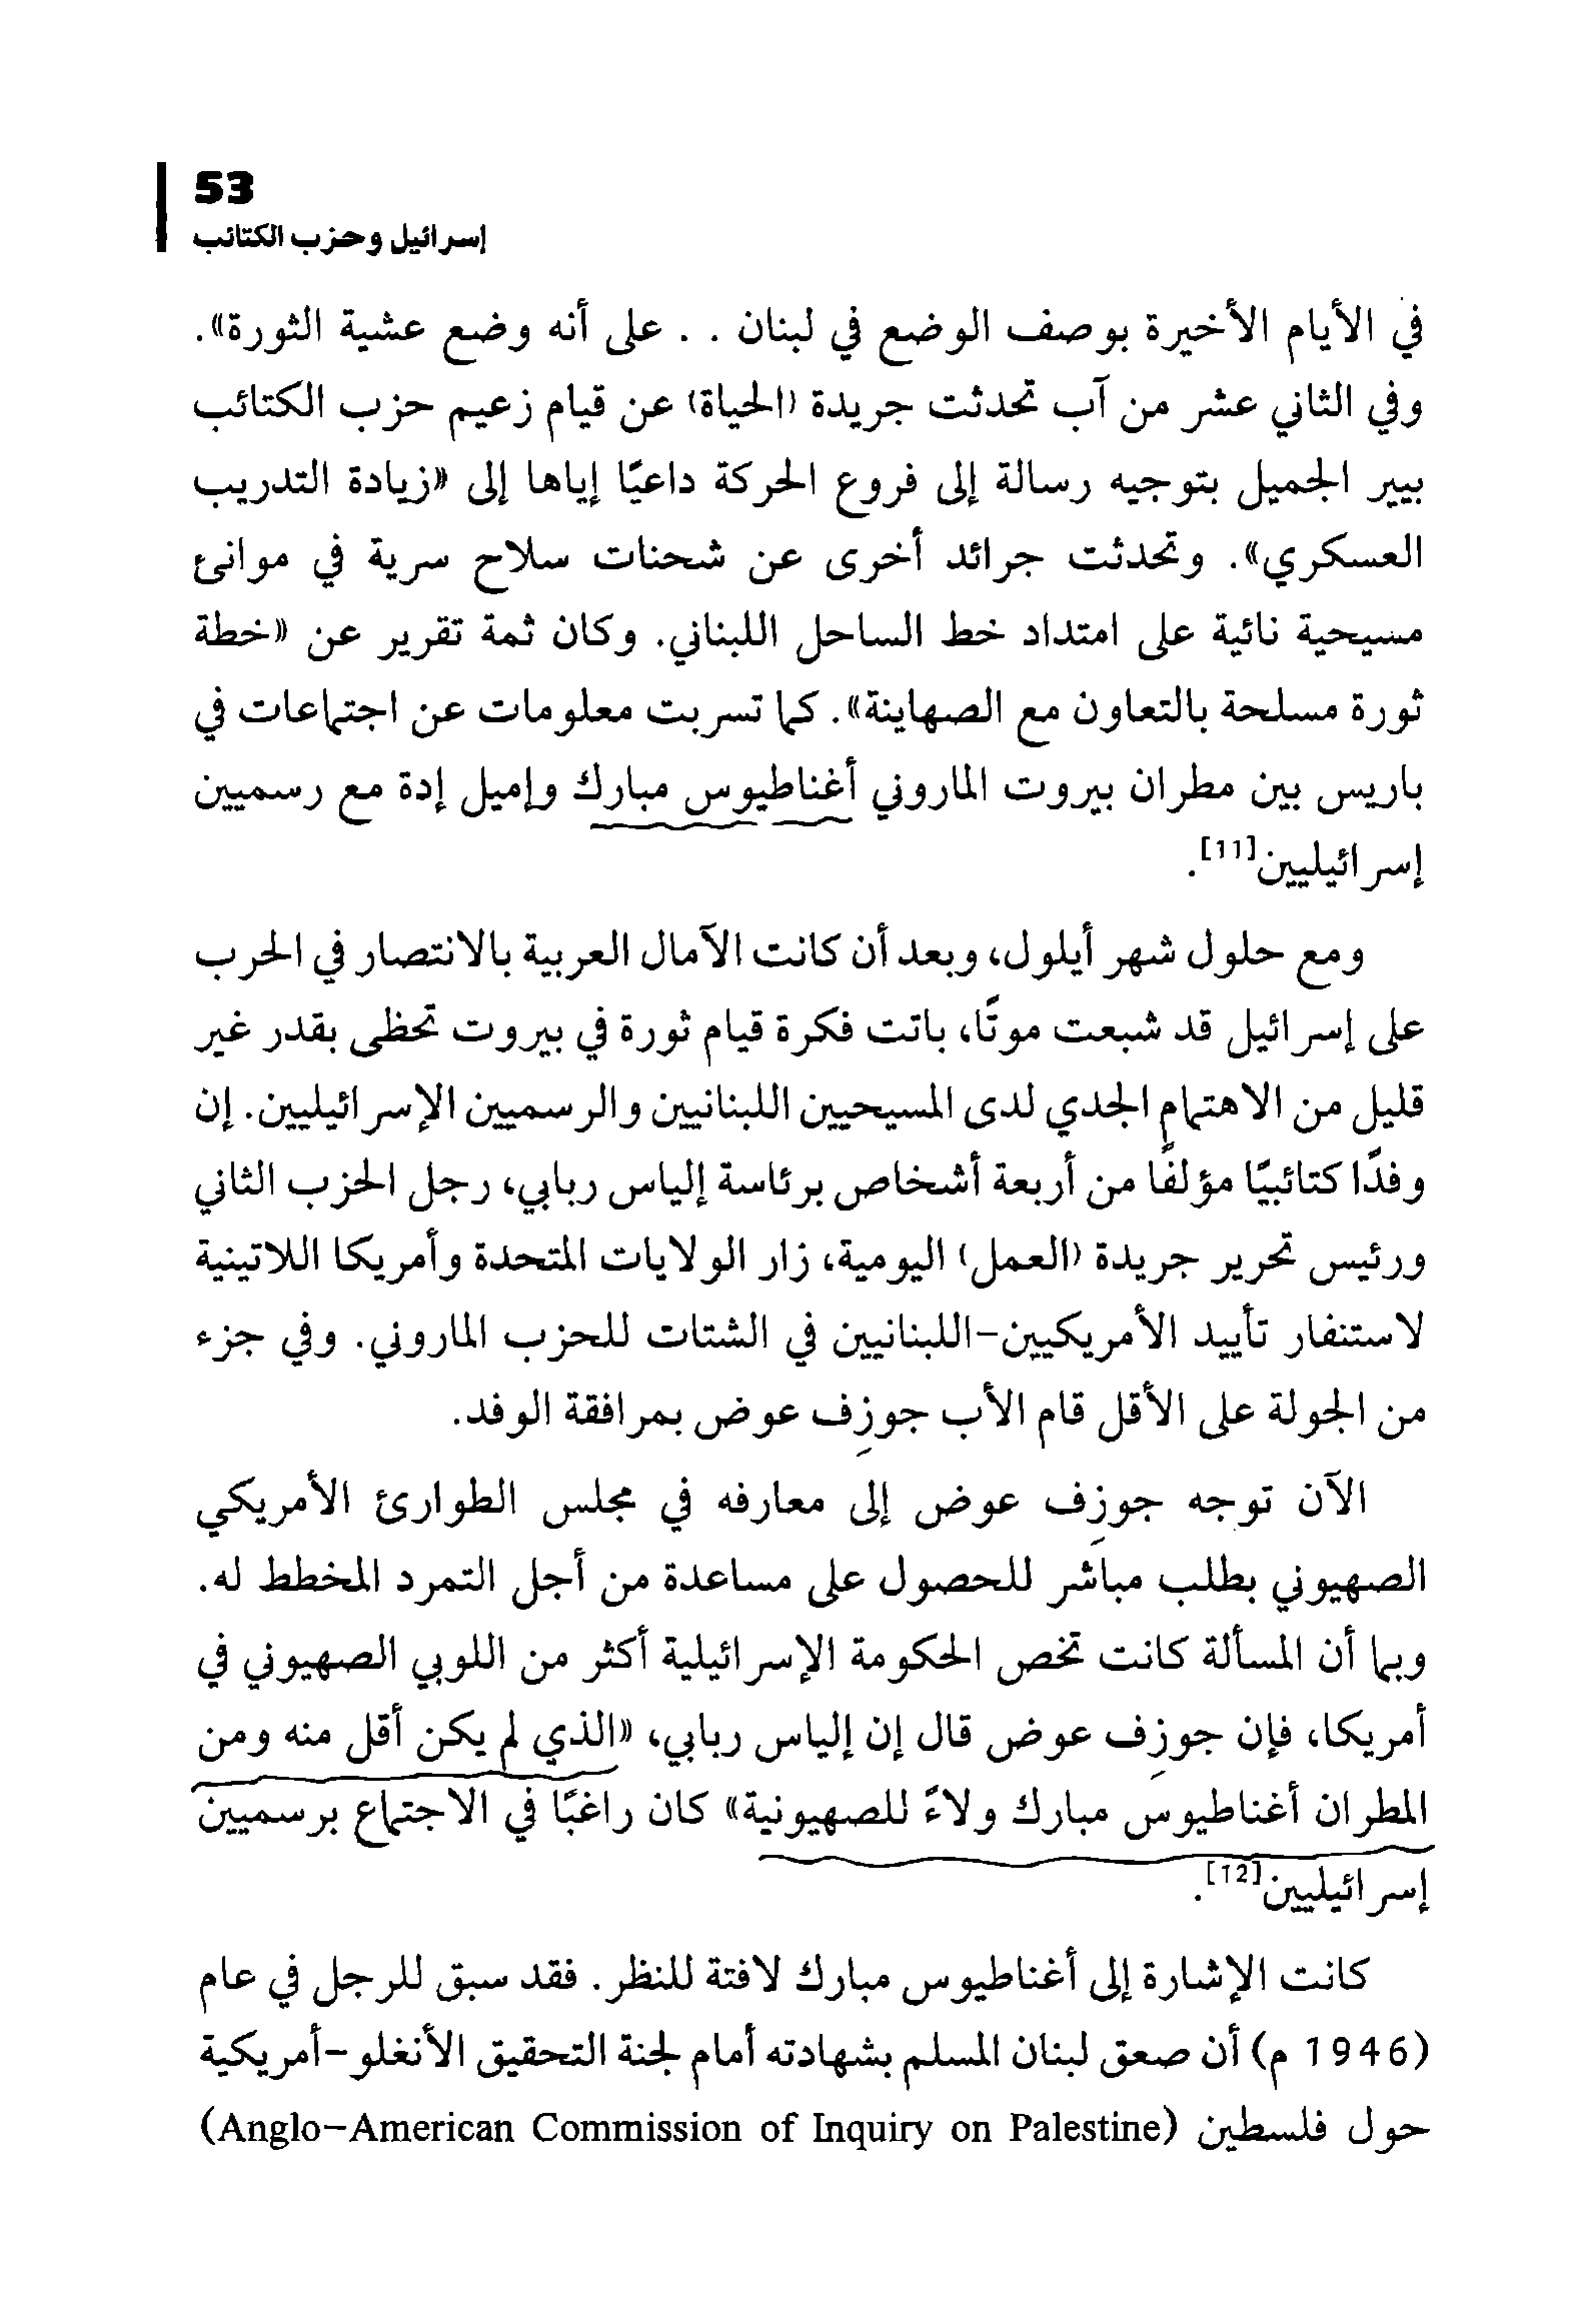 53
إسرائيل وحزب الكتائب
في الأيام الأخيرة بوصف الوضع في لبنان . . على أنه وضع عشية الثورة».
وفي الثاني عشر من آب تحدثت جريدة (الحياة) عن قيام زعيم حزب الكتائب
بيير الجميل بتوجيه رسالة إلى فروع الحركة داعيًا إياها إلى «زيادة التدريب
العسكري». وتحدثت جرائد أخرى عن شحنات سلاح سرية في موانئ
مسيحية نائية على امتداد خط الساحل اللبناني. وكان ثمة تقرير عن «خطة
ثورة مسلحة بالتعاون مع الصهاينة». كما تسربت معلومات عن اجتماعات في
باريس بين مطران بيروت الماروني أغناطيوس مبارك وإميل إدة مع رسميين
إسرائيليين[11].
ومع حلول شهر أيلول، وبعد أن كانت الآمال العربية بالانتصار في الحرب
على إسرائيل قد شبعت موتًا، باتت فكرة قيام ثورة في بيروت تحظى بقدر غير
قليل من الاهتمام الجدي لدى المسيحيين اللبنانيين والرسميين الإسرائيليين. إن
وفدًا كتائبيًا مؤلفًا من أربعة أشخاص برئاسة إلياس ربابي، رجل الحزب الثاني
ورئيس تحرير جريدة (العمل) اليومية، زار الولايات المتحدة وأمريكا اللاتينية
لاستنفار تأييد الأمريكيين-اللبنانيين في الشتات للحزب الماروني. وفي جزء
من الجولة على الأقل قام الأب جوزِف عوض بمرافقة الوفد.
الآن توجه جوزِف عوض إلى معارفه في مجلس الطوارئ الأمريكي
الصهيوني بطلب مباشر للحصول على مساعدة من أجل التمرد المخطط له.
وبما أن المسألة كانت تخص الحكومة الإسرائيلية أكثر من اللوبي الصهيوني في
أمريكا، فإن جوزِف عوض قال إن إلياس ربابي، «الذي لم يكن أقل منه ومن
المطران أغناطيوس مبارك ولاءً للصهيونية» كان راغبًا في الاجتماع برسميين
إسرائيليين[12].
كانت الإشارة إلى أغناطيوس مبارك لافتة للنظر. فقد سبق للرجل في عام
(1946 م) أن صعق لبنان المسلم بشهادته أمام لجنة التحقيق الأنغلو-أمريكية
حول فلسطين (Anglo-American Commission of Inquiry on Palestine)